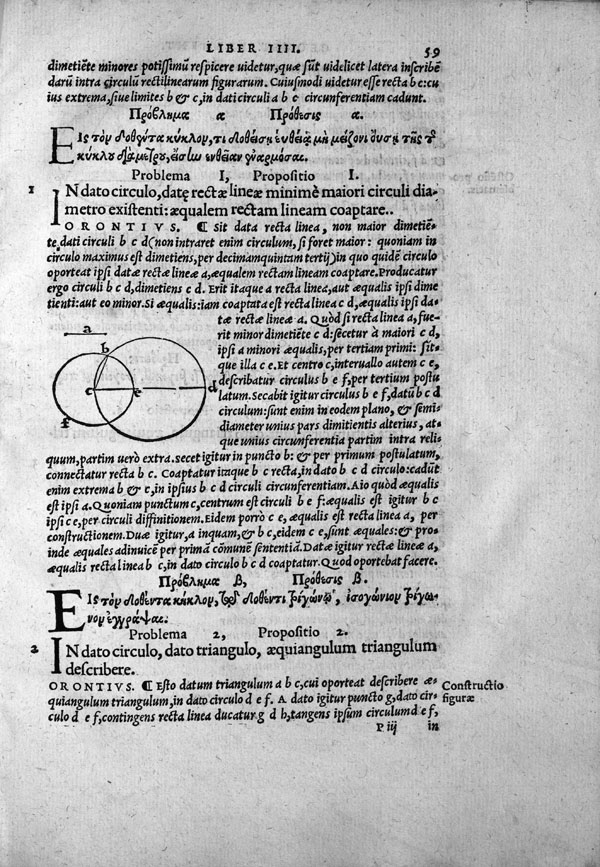 LIBER IIII.
59
dimetiẽte minores potissimũ respicere uidetur, quæ sũt uidelicet latera inscribẽ
darũ intra circulũ rectilinearum figurarum. Cuiusmodi uidetur esse recta b c: cu
ius extrema, siue limites b & c, in dati circuli a b c circunferentiam cadunt.
Πρόβλημα α Πρόθεσις α.
Εἰς τὸν δοθέντα κύκλον, τῇ δοθείσῃ εὐθείᾳ μὴ μείζονι οὔσῃ τῆς τοῦ
κύκλου διαμέτρου, ἴσην εὐθεῖαν ἐναρμόσαι.
Problema 1, Propositio 1.
1
IN dato circulo, datę rectæ lineæ minimè maiori circuli dia-
metro existenti: æqualem rectam lineam coaptare..
ORONTIVS. ¶ Sit data recta linea, non maior dimetiẽ-
te, dati circuli b c d (non intraret enim circulum, si foret maior: quoniam in
circulo maximus est dimetiens, per decimamquintam tertij) in quo quidẽ circulo
oporteat ipsi datæ rectæ lineæ a, æqualem rectam lineam coaptare. Producatur
ergo circuli b c d, dimetiens c d. Erit itaque a recta linea, aut æqualis ipsi dime
tienti: aut eo minor. Si æqualis: iam coaptata est recta linea c d, æqualis ipsi da-
tæ rectæ lineæ a. Quòd si recta linea a, fue-
rit minor dimetiẽte c d: secetur à maiori c d,
ipsi a minori æqualis, per tertiam primi: sit-
que illa c e. Et centro c, interuallo autem c e,
describatur circulus b e f, per tertium postu
latum. Secabit igitur circulus b e f, datũ b c d
circulum: sunt enim in eodem plano, & semi-
diameter unius pars dimitientis alterius, at-
que unius circunferentia partim intra reli-
a
b
c
e
d
f
quum, partim uerò extra. secet igitur in puncto b: & per primum postulatum,
connectatur recta b c. Coaptatur itaque b c recta, in dato b c d circulo: cadũt
enim extrema b & c, in ipsius b c d circuli circunferentiam. Aio quòd æqualis
est ipsi a. Quoniam punctum c, centrum est circuli b e f: æqualis est igitur b c
ipsi c e, per circuli diffinitionem. Eidem porrò c e, æqualis est recta linea a, per
constructionem. Duæ igitur, a inquam, & b c, eidem c e, sunt æquales: & pro-
inde æquales adinuicẽ per primã cõmunẽ sententiã. Datæ igitur rectæ lineæ a,
æqualis recta linea b c, in dato circulo b c d coaptatur. Quod oportebat facere.
Πρόβλημα β, Πρόθεσις β.
Εἰς τὸν δοθέντα κύκλον, τῷ δοθέντι τριγώνῳ, ἰσογώνιον τρίγω-
νον ἐγγράψαι.
Problema 2, Propositio 2.
2
IN dato circulo, dato triangulo, æquiangulum triangulum
describere.
ORONTIVS. ¶ Esto datum triangulum a b c, cui oporteat describere æ-
quiangulum triangulum, in dato circulo d e f. A dato igitur puncto g, dato cir-
culo d e f, contingens recta linea ducatur g d h, tangens ipsum circulum d e f,
Constructio
figuræ
P iij
in